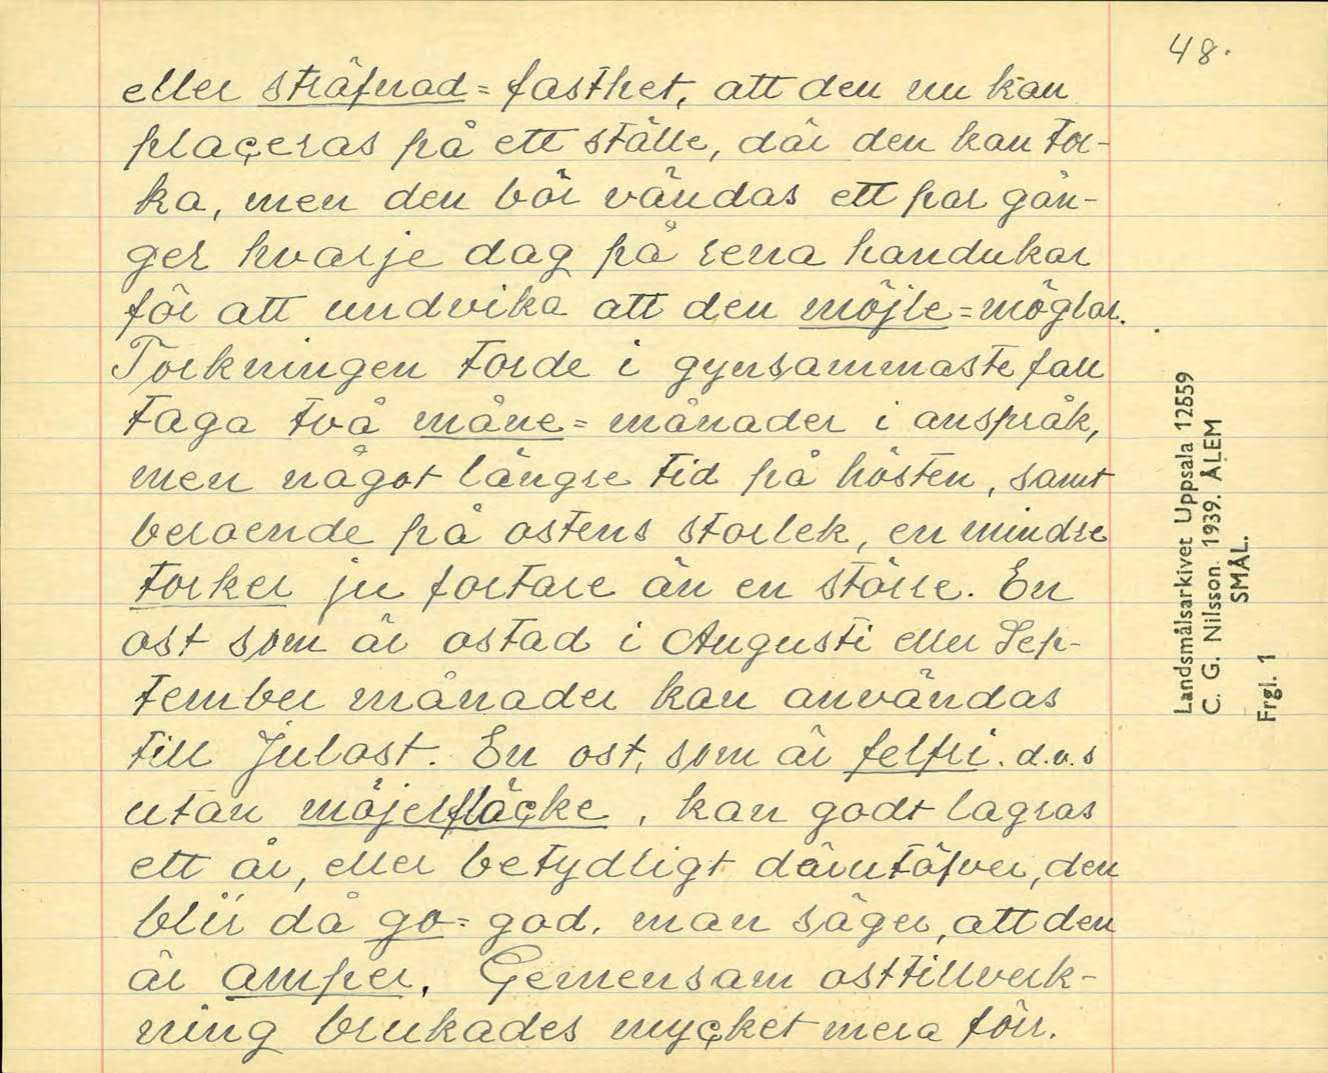 48.
eller sträfnad = fasthet, att den nu kan
plaçeras på ett ställe, där den kan tor-
ka, men den bör vändas ett par gån-
ger hvarje dag på rena handukar
för att undvika att den möjle = möglar.
Torkningen torde i gynsammaste fall
taga två måne = månader i anspråk,
men något längre tid på hösten, samt
beroende på ostens storlek, en mindre
torker ju fortare än en större. En
ost som är ostad i Augusti eller Sep-
tember månader kan användas
till Julost. En ost, som är felfri. d.v.s
utan möjelfläçke, kan godt lagras
ett år, eller betydligt därutöfver, den
blir då go = god, man säger, att den
är amper. Gemensam osttillverk-
ning brukades myçket mera förr.
Landsmålsarkivet Uppsala 12559
C. G. Nilsson. 1939. ÅLEM
SMÅL.
Frgl. 1